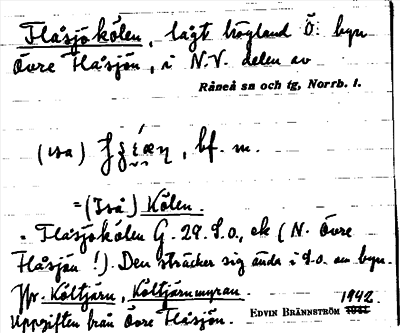 Flåsjökölen, lågt högland Ö. byn
Övre Flåsjön, i N.V. delen av
Råneå sn och tg, Norrb. l.
bf. m.
= (Iså) Kölen.
= Flåsjökölen G. 29. S.o., ek (N. Övre
Flåsjön !). Den sträcker sig ända i S.o. om byn.
Jfr. Költjärn, Költjärnmyran.
Uppgiften från Övre Flåsjön. EDVIN BRÄNNSTRÖM 1942.